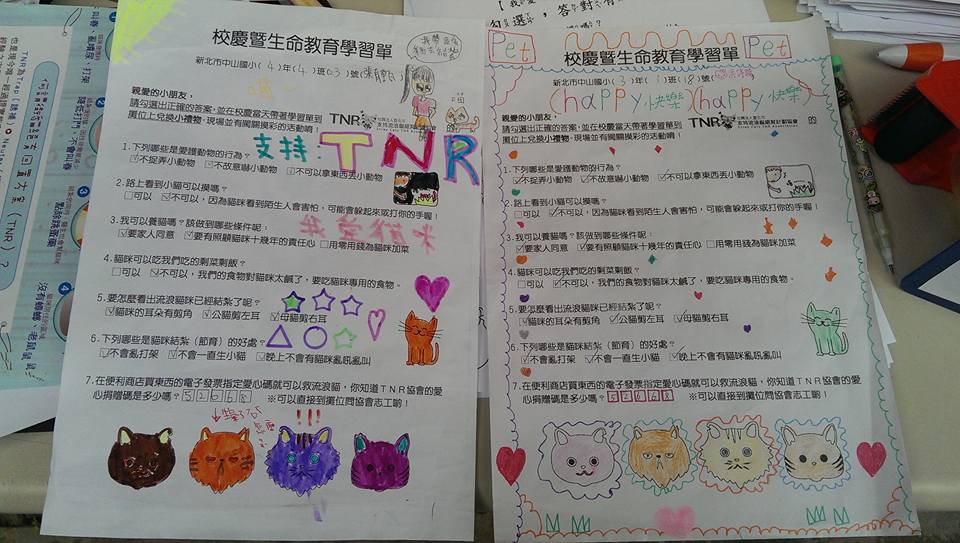 TNR為Trap(誘捕).Neuter(
何謂街貓四大案
(TNR)?
亂噴尿、打架
降低打鬥
不會亂叫
點除跳蚤藥
沒有蟑螂、老鼠
校慶暨生命教育學習單
新北市中山國小(4)年(4)班(03)號
親愛的小朋友，
請勾選出正確的答案，並在校慶當天帶著學習單到
攤位上兌換小禮物。現場並有闖關摸彩的活動唷！
TNR
支持:TNR
1.下列哪些是愛護動物的行為？
☑不捉弄小動物 ☑不故意嚇小動物 ☑不可以拿東西丟小動物
2.路上看到小貓可以摸嗎？
□可以 ☑不可以，因為貓咪看到陌生人會害怕，可能會躲起來或打你的手喔！
我愛貓咪
3.我可以養貓嗎？該做到哪些條件呢：
☑要家人同意 ☑要有照顧貓咪十幾年的責任心 □用零用錢為貓咪加菜
4.貓咪可以吃我們吃的剩菜剩飯？
□可以 ☑不可以，我們的食物對貓咪太鹹了，要吃貓咪專用的食物。
5.要怎麼看出流浪貓咪已經結紮了呢？
☑貓咪的耳朵有剪角 ☑公貓剪左耳 ☑母貓剪右耳
6.下列哪些是貓咪結紮（節育）的好處？
☑不會亂打架 ☑不會一直生小貓 ☑晚上不會有貓咪亂吼亂叫
7.在便利商店買東西的電子發票指定愛心碼就可以救流浪貓，你知道TNR協會的愛
心捐贈碼是多少嗎？52068 ※可以直接到攤位問協會志工喲！
!!!
Pet
Pet
校慶暨生命教育學習單
新北市中山國小(3)年(1)班(18)號
(happy快樂)(happy快樂)
親愛的小朋友，
請勾選出正確的答案，並在校慶當天帶著學習單到
攤位上兌換小禮物。現場並有闖關摸彩的活動唷！
TNR
1.下列哪些是愛護動物的行為？
☑不捉弄小動物 ☑不故意嚇小動物 ☑不可以拿東西丟小動物
2.路上看到小貓可以摸嗎？
□可以 ☑不可以，因為貓咪看到陌生人會害怕，可能會躲起來或打你的手喔！
3.我可以養貓嗎？該做到哪些條件呢：
☑要家人同意 ☑要有照顧貓咪十幾年的責任心 □用零用錢為貓咪加菜
4.貓咪可以吃我們吃的剩菜剩飯？
□可以 ☑不可以，我們的食物對貓咪太鹹了，要吃貓咪專用的食物。
5.要怎麼看出流浪貓咪已經結紮了呢？
☑貓咪的耳朵有剪角 ☑公貓剪左耳 ☑母貓剪右耳
6.下列哪些是貓咪結紮（節育）的好處？
☑不會亂打架 ☑不會一直生小貓 ☑晚上不會有貓咪亂吼亂叫
7.在便利商店買東西的電子發票指定愛心碼就可以救流浪貓，你知道TNR協會的愛
心捐贈碼是多少嗎？52068 ※可以直接到攤位問協會志工喲！